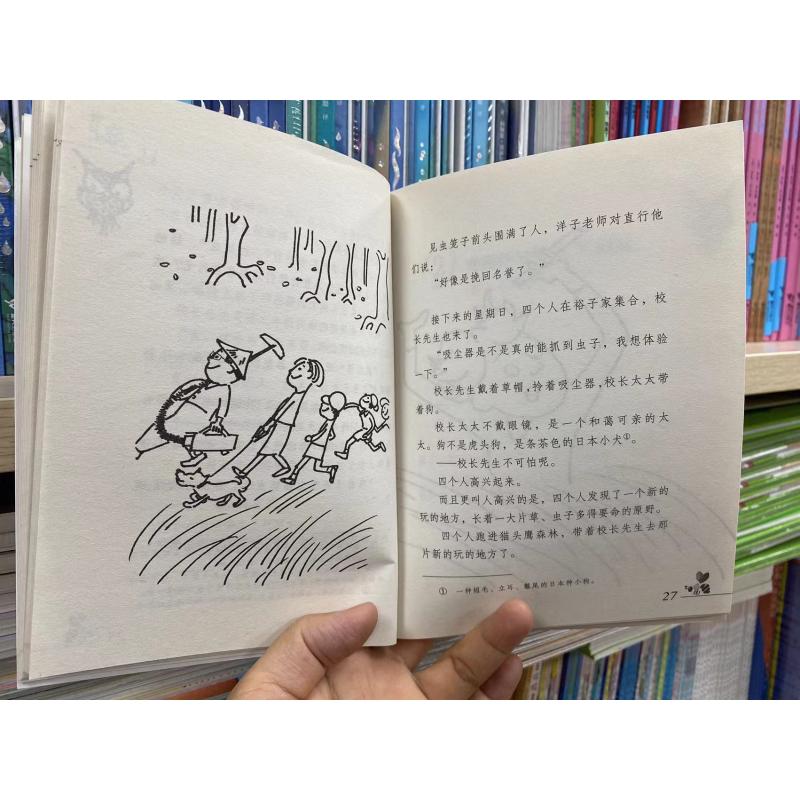 见虫笼子前头围满了人，洋子老师对直行他
们说：
“好像是挽回名誉了。”
接下来的星期日，四个人在裕子家集合，校
长先生也来了。
“吸尘器是不是真的能抓到虫子，我想体验
一下。”
校长先生戴着草帽，拎着吸尘器，校长太太带
着狗。
校长太太不戴眼镜，是一个和蔼可亲的太
太。狗不是虎头狗，是条茶色的日本小犬①。
——校长先生不可怕呢。
四个人高兴起来。
而且更叫人高兴的是，四个人发现了一个新的
玩的地方，长着一大片草、虫子多得要命的原野。
四个人跑进猫头鹰森林，带着校长先生去那
片新的玩的地方了。
① 一种短毛、立耳、鬈尾的日本种小狗。
27